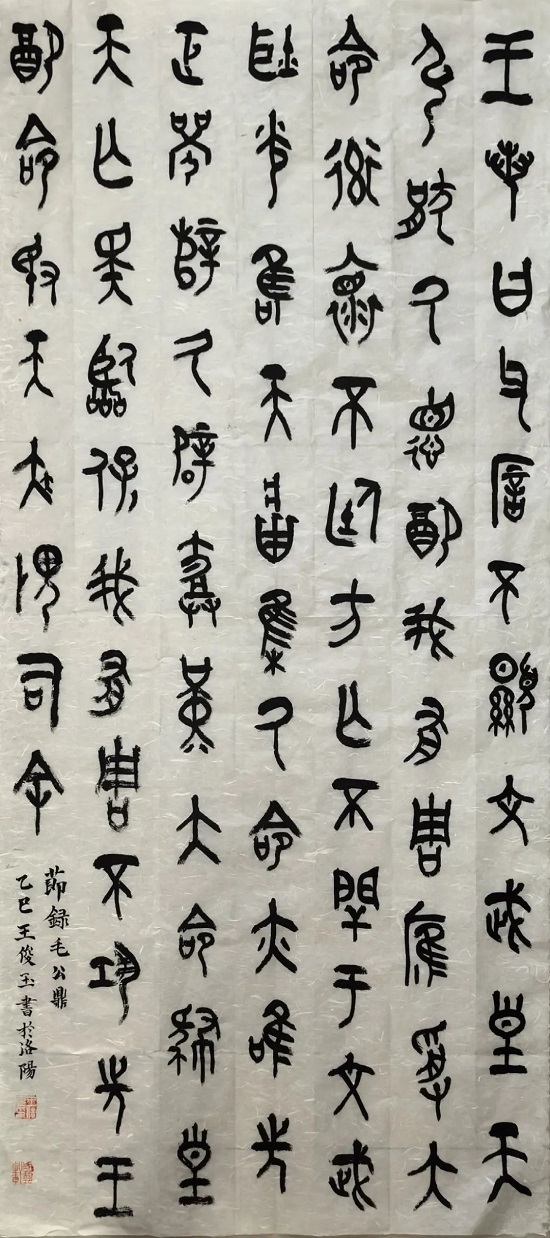 王若曰父厝不顯文武皇天
弘猒厥德配我有周膺受大
命率懷不廷方亡不閈于文武
耿光唯天將集厥命亦唯先
正襄辥厥辟𢦚堇大命肆皇
天亡斁臨保我有周不鞏先王
配命敃天疾畏司余
節録毛公鼎
乙巳王俊玉書於洛陽